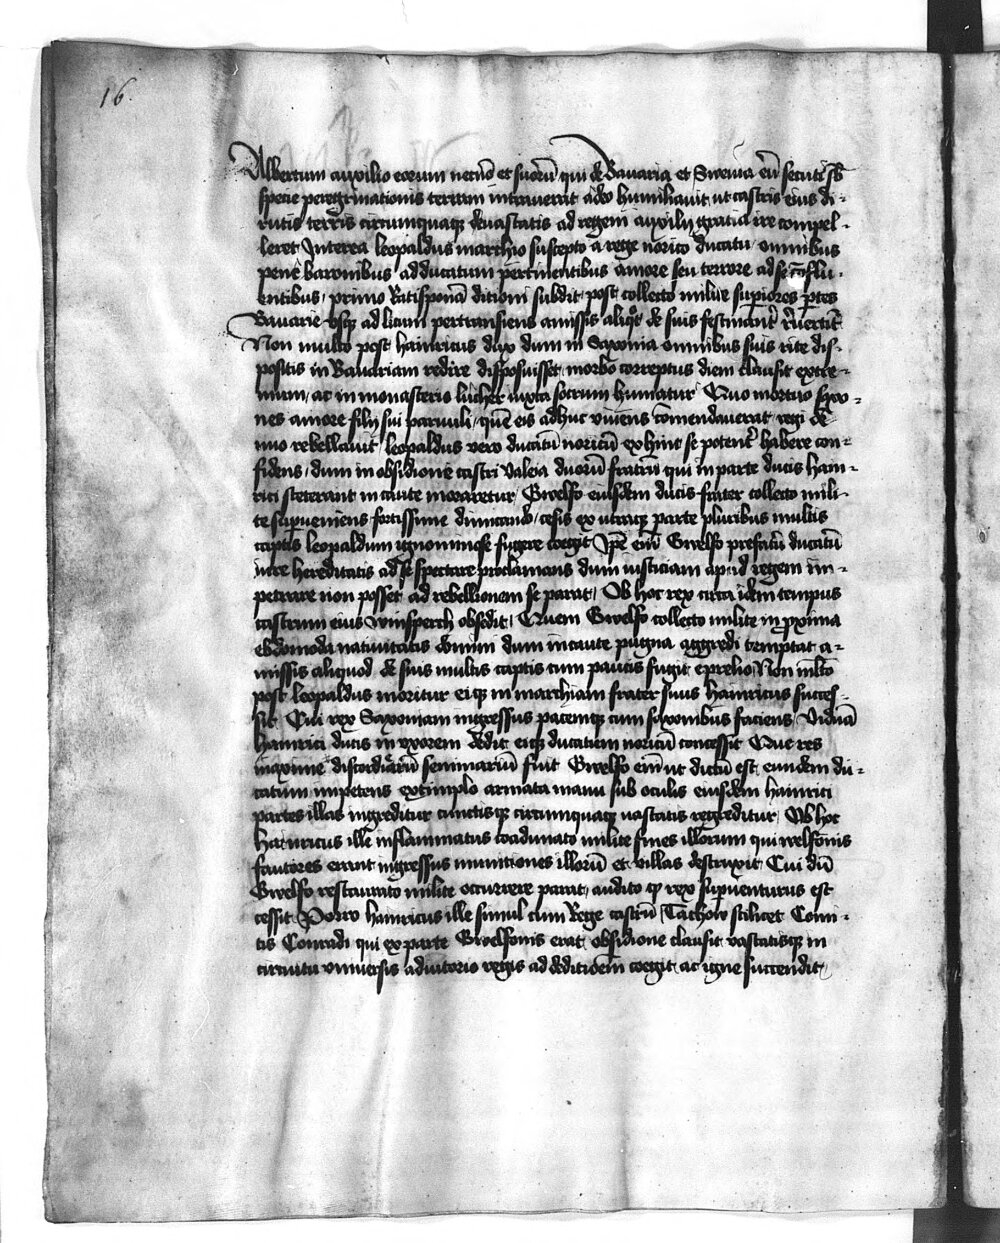 16.
Albertum auxilio eorum necnō et suorū qui de Bauaria et Sweuia eū secuti sb
specie peregrinationis terram intrauerāt adeo humiliauit ut castris eius di-
rutis terris circumquaqꝫ deuastatis ad regem auxilij gratia ire compel-
leret Interea leopaldus marchio suscepto a rege norico ducatu omnibus
penē baronibus ad ducatum pertinentibus amore seu terrore ad se cōflu-
entibus, primo Ratisponā ditioni subdit, post collecto milite supiores ptes
Bauarie vsqꝫ ad licum pertransiens amissis aliqt de suis festinant reuertit
Non multo post hainricus dux dum in Saxonia omnibus suis rite dis-
positis in Bauariam redire disposuisset, morbo correptus diem clausit extre-
mum, ac in monasterio lucher iuxta socrum humatur Quo mortuo sxo-
nes amore filij sui paruuli, quē eis adhuc viuens cōmendauerat, regi de
nuo rebellauit leopaldus vero ducatū noricū exhinc se potent habere con-
fidens, dum in obsidione castri Valeia duorū fratrū qui in parte ducis hain-
rici steterant incaute moraretur, Gwelfo eiusdem ducis frater collecto mili-
te supueniens fortissime dimicando, cesis ex utraqꝫ parte pluribus multis
captis leopaldum ignominiose fugere coegit Ipe em Gwelfo prefatū ducatū
iure hereditatis ad se spectare proclamans dum iusticiam apud regem im-
petrare non posset ad rebellionem se parat, Ob hoc rex circa idem tempus
castrum eius winsperch obsedit, Quem Gwelfo collecto milite in pxima
ebdomoda natiuitatis domini dum incaute pugna aggredi temptat a-
missis aliquod de suis multis captis cum paucis fugit e prelio, Non mlto
post leopaldus moritur eiqꝫ in marchiam frater suus hainricus succes-
sit, Cui rex Saxoniam ingressus pacemqꝫ cum saxonibus faciens, Viduā
hainrici ducis in vxorem dedit eiqꝫ ducatum noricū concessit Que res
maxime discordiarū seminariū fuit Gwelfo em ut dictū est eundem du-
catum impetens extimplo armata manu sub oculis eiusdem hainrici
partes illas ingreditur cunctisqꝫ circumquaqꝫ vastatis regreditur, Ob hoc
hainricus ille inflammatus coadunato milite fines illorum qui welfonis
fautores erant ingressus munitiones illorū et villas destruxit Cui dū
Gwelfo restaurato milite occurrere parat, audito qꝫ rex supuenturus est
cessit Porro hainricus ille simul cum Rege castrū Tachow scilicet Comi-
tis Conradi qui ex parte Gwelfonis erat obsidione clausit vastatisqꝫ in
circuitu vniuersis adiutorio regis ad deditiōem coegit ac igne succendit